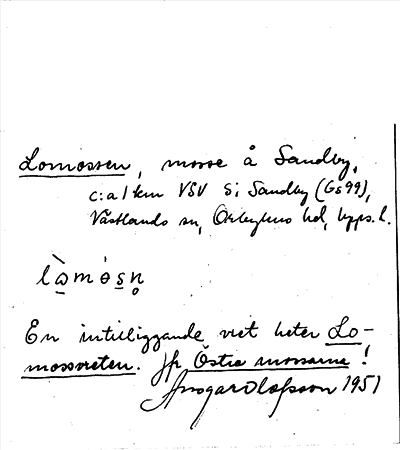 Lomossen, mosse å Sandby,
c:a 1 km VSV Si Sandby (Gs 99),
Västlands sn, Örbyhus hd, Upps. l.
lò̱mòsn̥
En intilliggande vret heter Lo-
mossvreten. Jfr Östra mossarna!
Ansgar Olofsson 1951